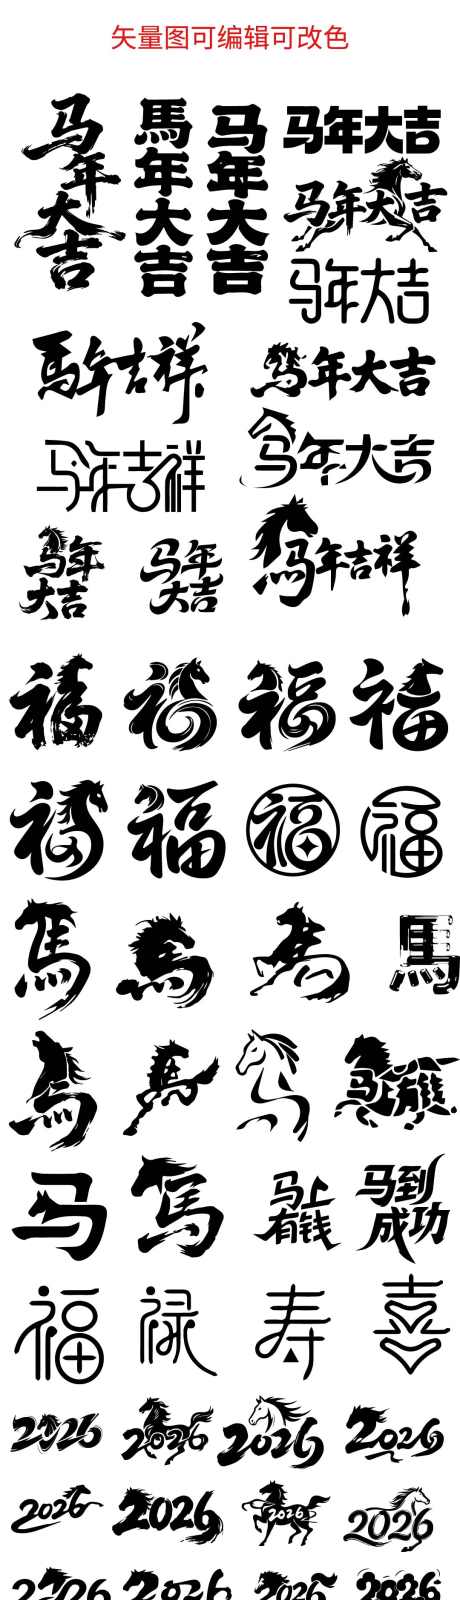 矢量图可编辑可改色
马年大吉
馬年大吉
马年大吉
马年大吉
马年大吉
马年大吉
馬年吉祥
馬年大吉
马年吉祥
马年大吉
马年大吉
马年大吉
馬年吉祥
福
福
福
福
福
福
福
福
馬
馬
馬
馬
马
馬
马上有钱
马
馬
马上
有钱
马到
成功
福
禄
寿
喜
2026
2026
2026
2026
2026
2026
2026
2026
2026
2026
2026
2026